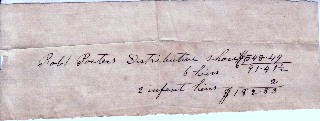 Robt Porters Distributive share $548.49
6 heirs 91.41½
2
2 infant heirs $182.83